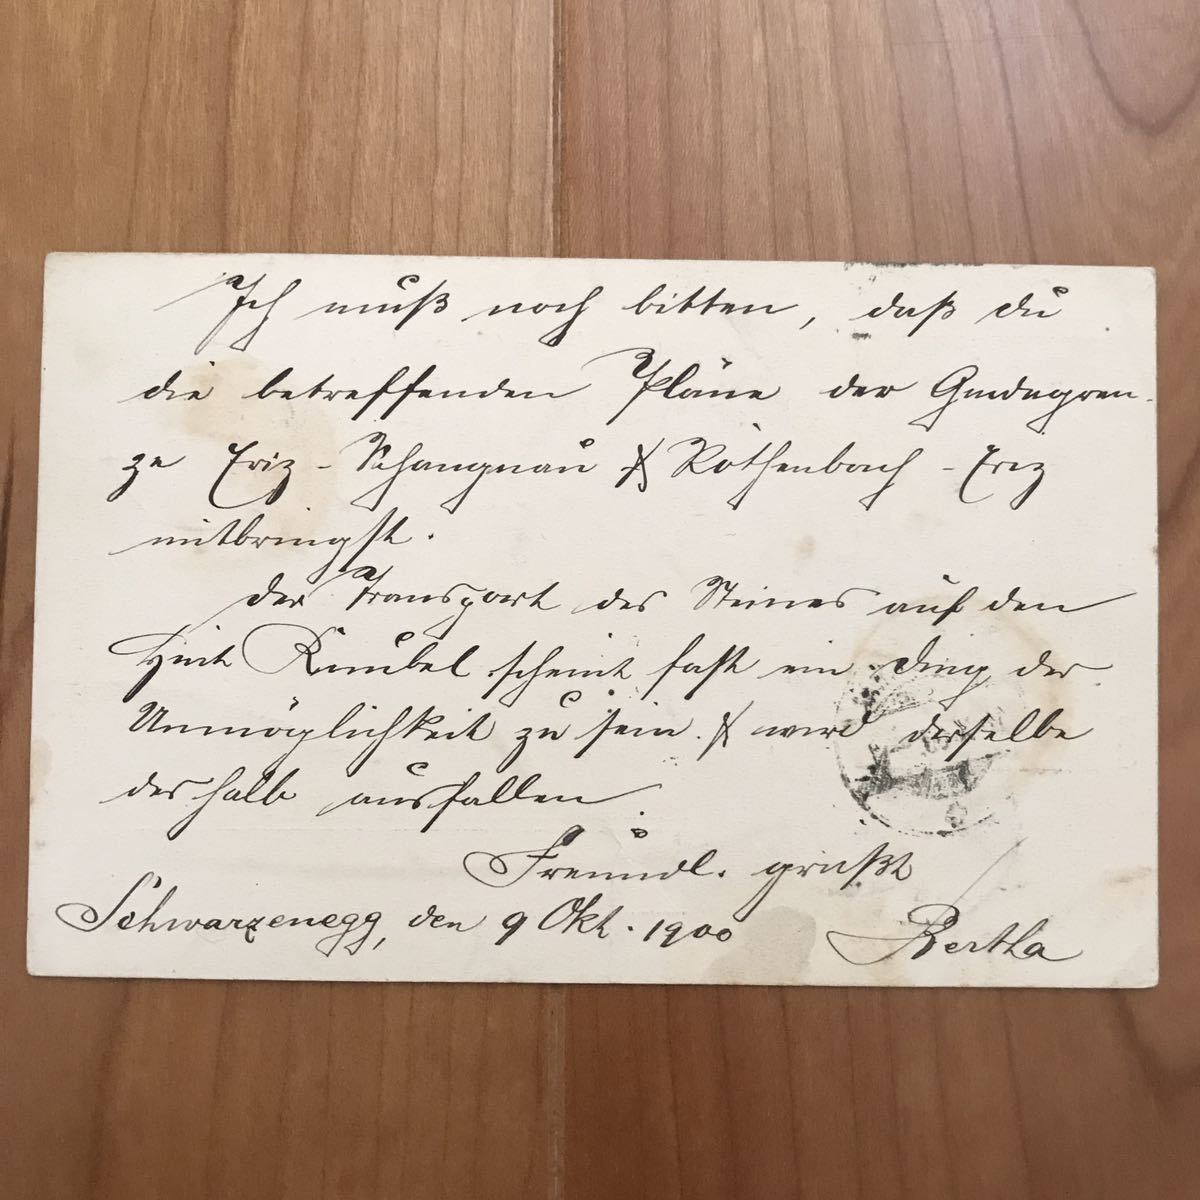 Ich muß noch bitten, daß du
die betreffenden Pläne der Gmdegren-
ze Eriz - Schangnau & Röthenbach - Eriz
mitbringst.
Der Transport des Steines auf den
Hint Knubel scheint fast ein Ding der
Unmöglichkeit zu sein & wird derselbe
deshalb ausfallen.
Freundl. grüßt
Schwarzenegg, den 9 Okt. 1900
Bertha